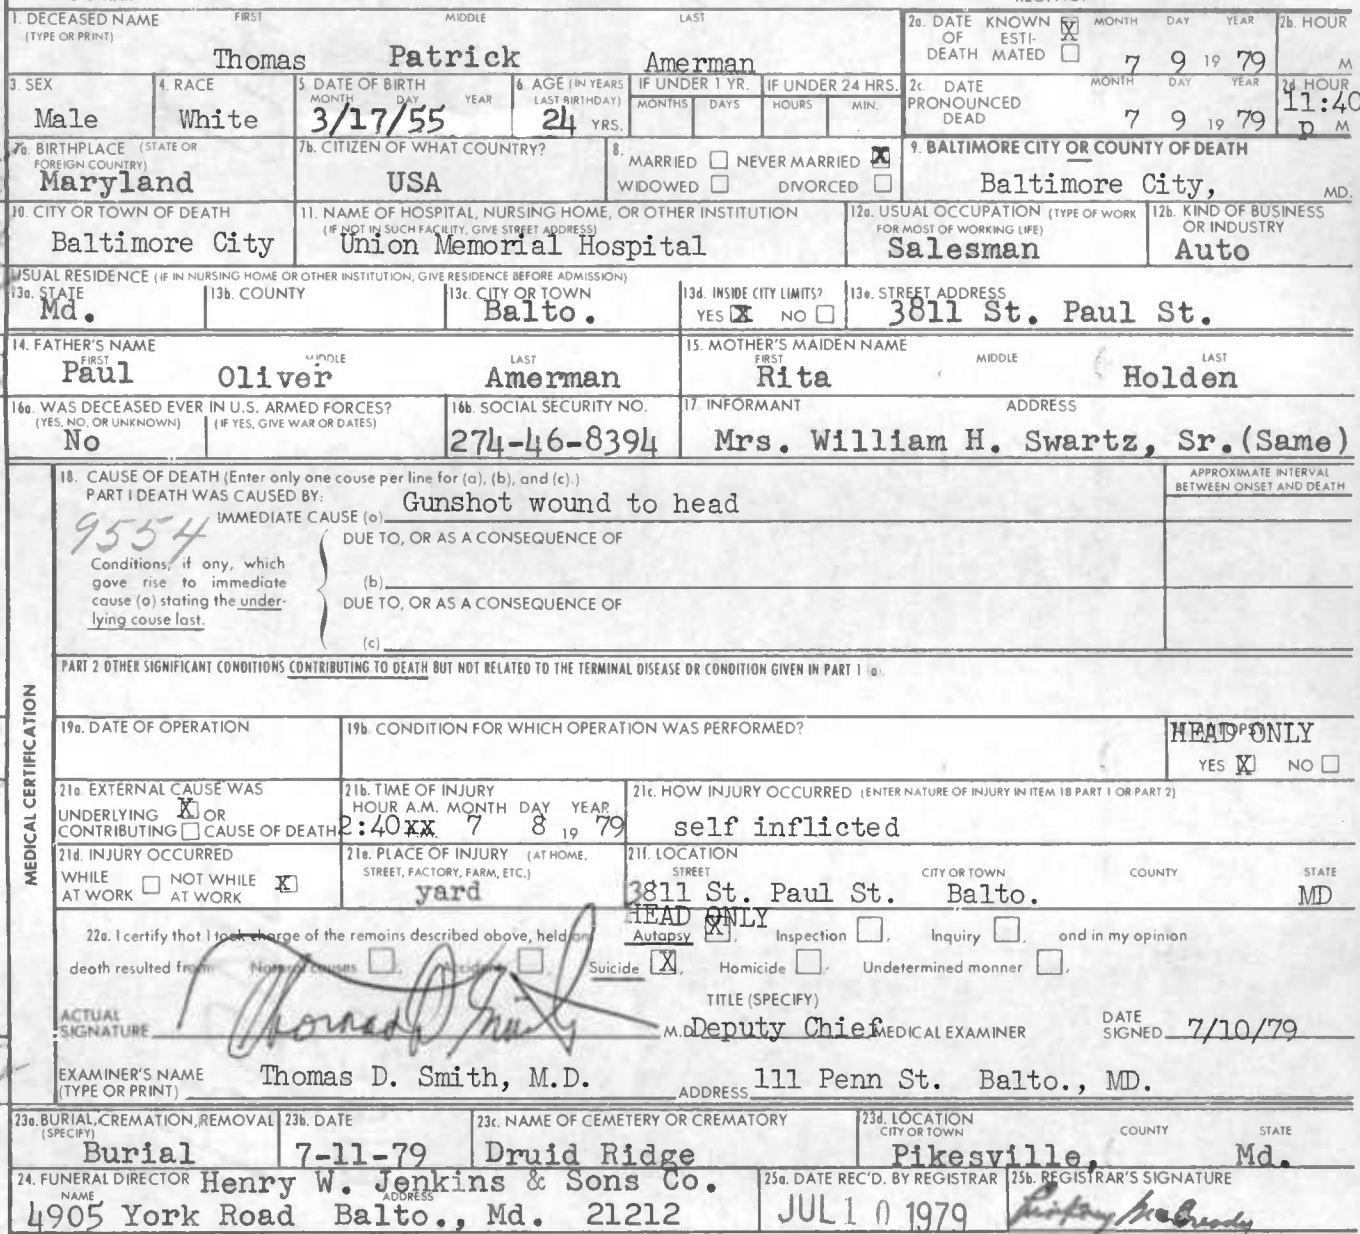 1. DECEASED NAME FIRST MIDDLE LAST
(TYPE OR PRINT)
Thomas Patrick Amerman
2a. DATE OF DEATH KNOWN X ESTIMATED MONTH DAY YEAR
7 9 19 79
2b. HOUR
M
3. SEX
Male
4. RACE
White
5 DATE OF BIRTH
MONTH DAY YEAR
3/17/55
6 AGE (IN YEARS
LAST BIRTHDAY)
24 YRS.
IF UNDER 1 YR.
MONTHS DAYS
IF UNDER 24 HRS.
HOURS MIN.
2c. DATE PRONOUNCED DEAD MONTH DAY YEAR
7 9 19 79
2d HOUR
11:40
p M
7a. BIRTHPLACE (STATE OR
FOREIGN COUNTRY)
Maryland
7b. CITIZEN OF WHAT COUNTRY?
USA
8.
MARRIED NEVER MARRIED X
WIDOWED DIVORCED
9. BALTIMORE CITY OR COUNTY OF DEATH
Baltimore City, MD.
10. CITY OR TOWN OF DEATH
Baltimore City
11. NAME OF HOSPITAL, NURSING HOME, OR OTHER INSTITUTION
(IF NOT IN SUCH FACILITY, GIVE STREET ADDRESS)
Union Memorial Hospital
12a. USUAL OCCUPATION (TYPE OF WORK
FOR MOST OF WORKING LIFE)
Salesman
12b. KIND OF BUSINESS
OR INDUSTRY
Auto
USUAL RESIDENCE (IF IN NURSING HOME OR OTHER INSTITUTION, GIVE RESIDENCE BEFORE ADMISSION)
13a. STATE
Md.
13b. COUNTY
13c. CITY OR TOWN
Balto.
13d. INSIDE CITY LIMITS?
YES X NO
13e. STREET ADDRESS
3811 St. Paul St.
14. FATHER'S NAME
FIRST MIDDLE LAST
Paul Oliver Amerman
15. MOTHER'S MAIDEN NAME
FIRST MIDDLE LAST
Rita Holden
16a. WAS DECEASED EVER IN U.S. ARMED FORCES?
(YES, NO, OR UNKNOWN) (IF YES, GIVE WAR OR DATES)
No
16b. SOCIAL SECURITY NO.
274-46-8394
17 INFORMANT ADDRESS
Mrs. William H. Swartz, Sr.(Same)
MEDICAL CERTIFICATION
18. CAUSE OF DEATH (Enter only one couse per line for (a), (b), and (c).)
PART I DEATH WAS CAUSED BY:
IMMEDIATE CAUSE (a) Gunshot wound to head
APPROXIMATE INTERVAL
BETWEEN ONSET AND DEATH
9554
DUE TO, OR AS A CONSEQUENCE OF
Conditions, if any, which
gove rise to immediate
cause (a) stating the under-
lying couse last.
(b)
DUE TO, OR AS A CONSEQUENCE OF
(c)
PART 2 OTHER SIGNIFICANT CONDITIONS CONTRIBUTING TO DEATH BUT NOT RELATED TO THE TERMINAL DISEASE OR CONDITION GIVEN IN PART 1 (a).
19a. DATE OF OPERATION
19b. CONDITION FOR WHICH OPERATION WAS PERFORMED?
HEAD ONLY
YES X NO
21a. EXTERNAL CAUSE WAS
UNDERLYING X OR
CONTRIBUTING CAUSE OF DEATH
21b. TIME OF INJURY
HOUR A.M. MONTH DAY YEAR
2:40 XX 7 8 19 79
21c. HOW INJURY OCCURRED (ENTER NATURE OF INJURY IN ITEM 18 PART 1 OR PART 2)
self inflicted
21d. INJURY OCCURRED
WHILE AT WORK NOT WHILE AT WORK X
21e. PLACE OF INJURY (AT HOME,
STREET, FACTORY, FARM, ETC.)
yard
21f. LOCATION
STREET CITY OR TOWN COUNTY STATE
3811 St. Paul St. Balto. MD
HEAD ONLY
22a. I certify that I took charge of the remains described above, held an Autopsy X, Inspection, Inquiry, and in my opinion
death resulted from Natural causes, Accident, Suicide X, Homicide, Undetermined manner.
ACTUAL
SIGNATURE Thomas D. Smith M.D.
TITLE (SPECIFY)
Deputy Chief MEDICAL EXAMINER
DATE
SIGNED 7/10/79
EXAMINER'S NAME
(TYPE OR PRINT) Thomas D. Smith, M.D.
ADDRESS 111 Penn St. Balto., MD.
23a. BURIAL, CREMATION, REMOVAL
(SPECIFY)
Burial
23b. DATE
7-11-79
23c. NAME OF CEMETERY OR CREMATORY
Druid Ridge
23d. LOCATION
CITY OR TOWN COUNTY STATE
Pikesville, Md.
24. FUNERAL DIRECTOR Henry W. Jenkins & Sons Co.
NAME ADDRESS
4905 York Road Balto., Md. 21212
25a. DATE REC'D. BY REGISTRAR
JUL 10 1979
25b. REGISTRAR'S SIGNATURE